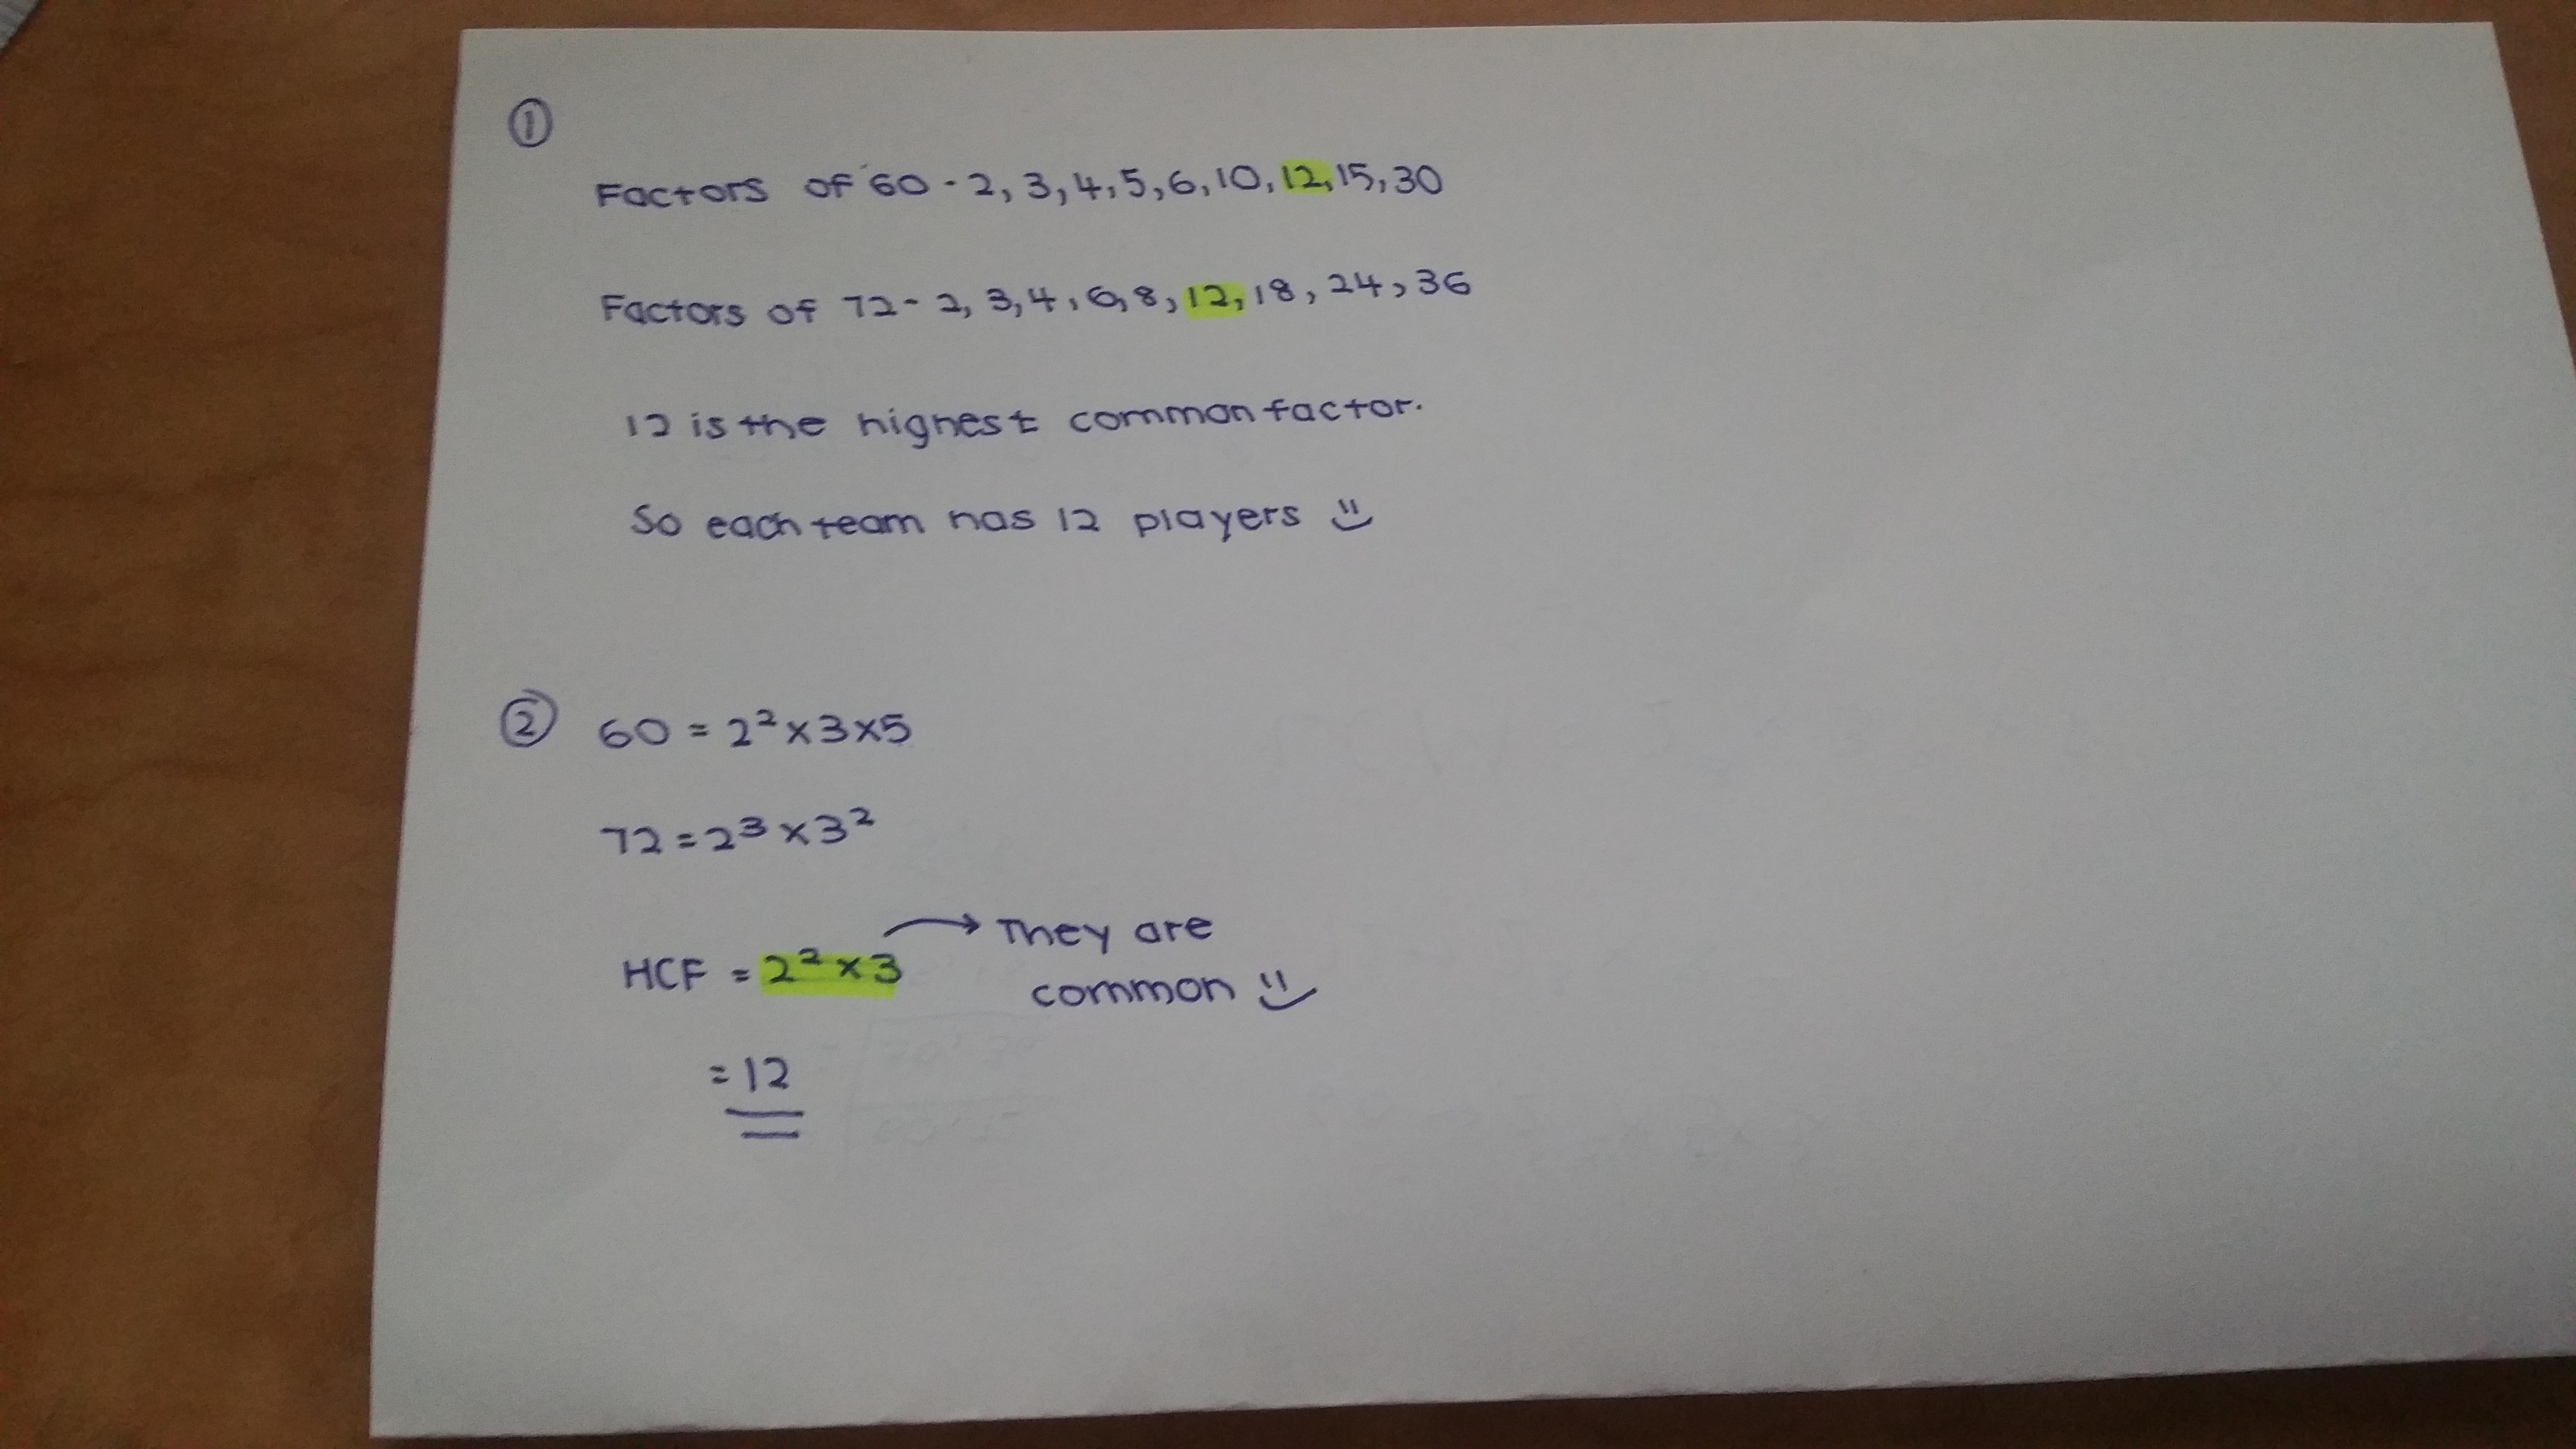 ①
Factors of 60 - 2, 3, 4, 5, 6, 10, 12, 15, 30
Factors of 72 - 2, 3, 4, 6, 8, 12, 18, 24, 36
12 is the highest common factor.
So each team has 12 players
② 60 = 2² × 3 × 5
72 = 2³ × 3²
HCF = 2² × 3 → They are
common
= 12